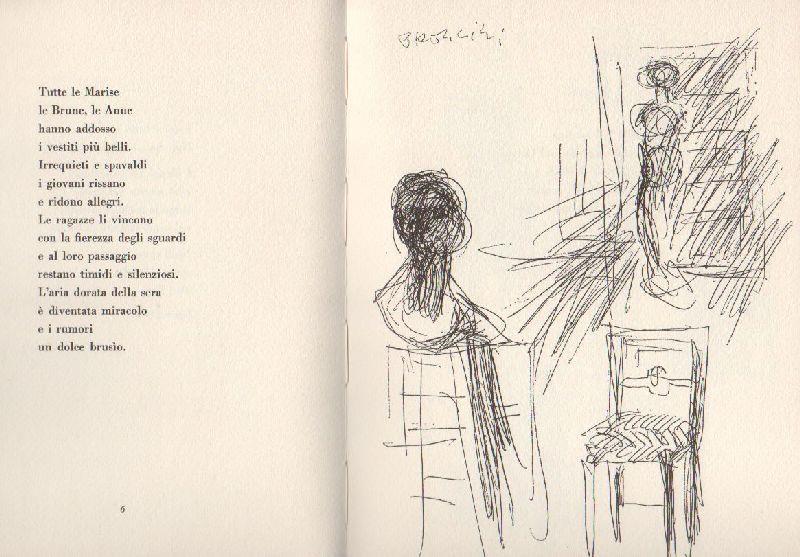 Tutte le Marise
le Brune, le Anne
hanno addosso
i vestiti più belli.
Irrequieti e spavaldi
i giovani rissano
e ridono allegri.
Le ragazze li vincono
con la fierezza degli sguardi
e al loro passaggio
restano timidi e silenziosi.
L'aria dorata della sera
è diventata miracolo
e i rumori
un dolce brusìo.
6